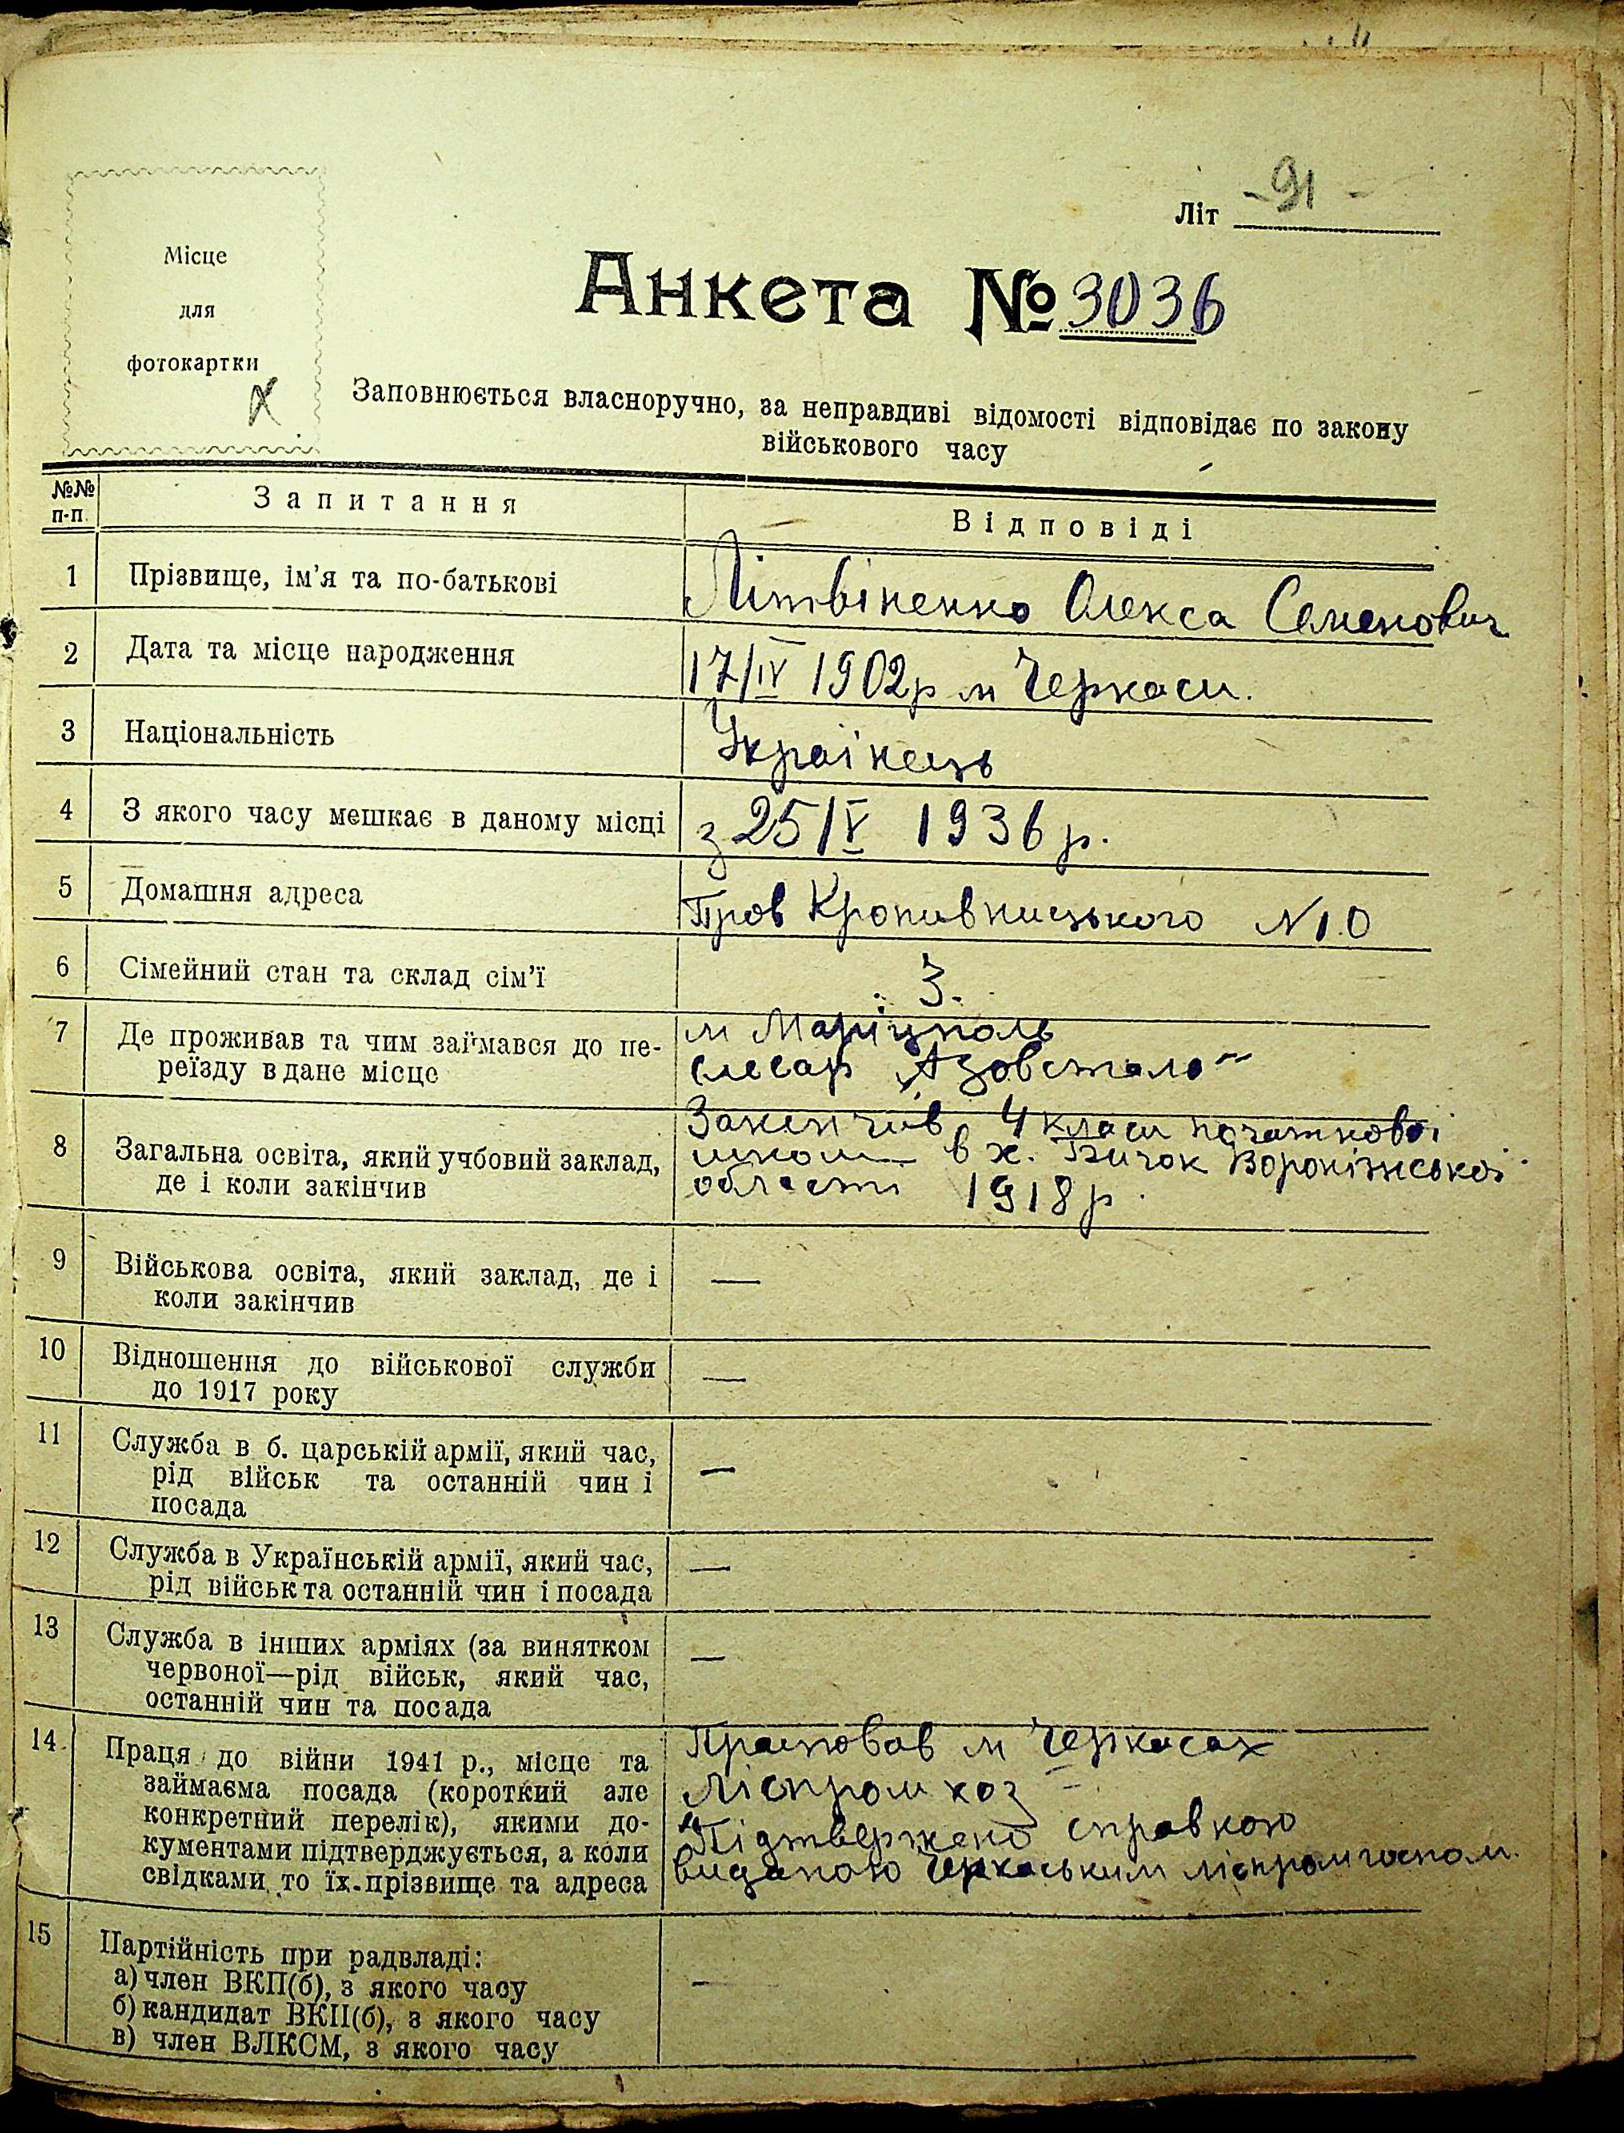 Літ -91-
Місце
для
фотокартки
Анкета № 3036
Заповнюється власноручно, за неправдиві відомості відповідає по закону
військового часу
№№
п-п
Запитання
Відповіді
1 Прізвище, ім'я та по-батькові
Літвіненко Олекса Семенович
2 Дата та місце народження
17/IV 1902р м Черкаси.
3 Національність
Украінець
4 З якого часу мешкає в даному місці
з 25/V 1936 р.
5 Домашня адреса
Пров Кропивницького N 10
6 Сімейний стан та склад сім'ї
3.
7 Де проживав та чим займався до пе-
реїзду в дане місце
м Маріуполь
слесар „Азовсталь"
8 Загальна освіта, який учбовий заклад,
де і коли закінчив
Закенчив 4 класи початкової
школи в х. Бичок Вороніжської
області 1918 р.
9 Військова освіта, який заклад, де і
коли закінчив
—
10 Відношення до військової служби
до 1917 року
—
11 Служба в б. царській армії, який час,
рід військ та останній чин і
посада
—
12 Служба в Українській армії, який час,
рід військ та останній чин і посада
—
13 Служба в інших арміях (за винятком
червоної—рід військ, який час,
останній чин та посада
—
14 Праця до війни 1941 р., місце та
займаєма посада (короткий але
конкретний перелік), якими до-
кументами підтверджується, а коли
свідками, то їх прізвище та адреса
Працював м Черкасах
Ліспромхоз
Підтвержено справкою
виданою Черкаським ліспромгоспом.
15 Партійність при радвладі:
а) член ВКП(б), з якого часу
б) кандидат ВКП(б), з якого часу
в) член ВЛКСМ, з якого часу
—